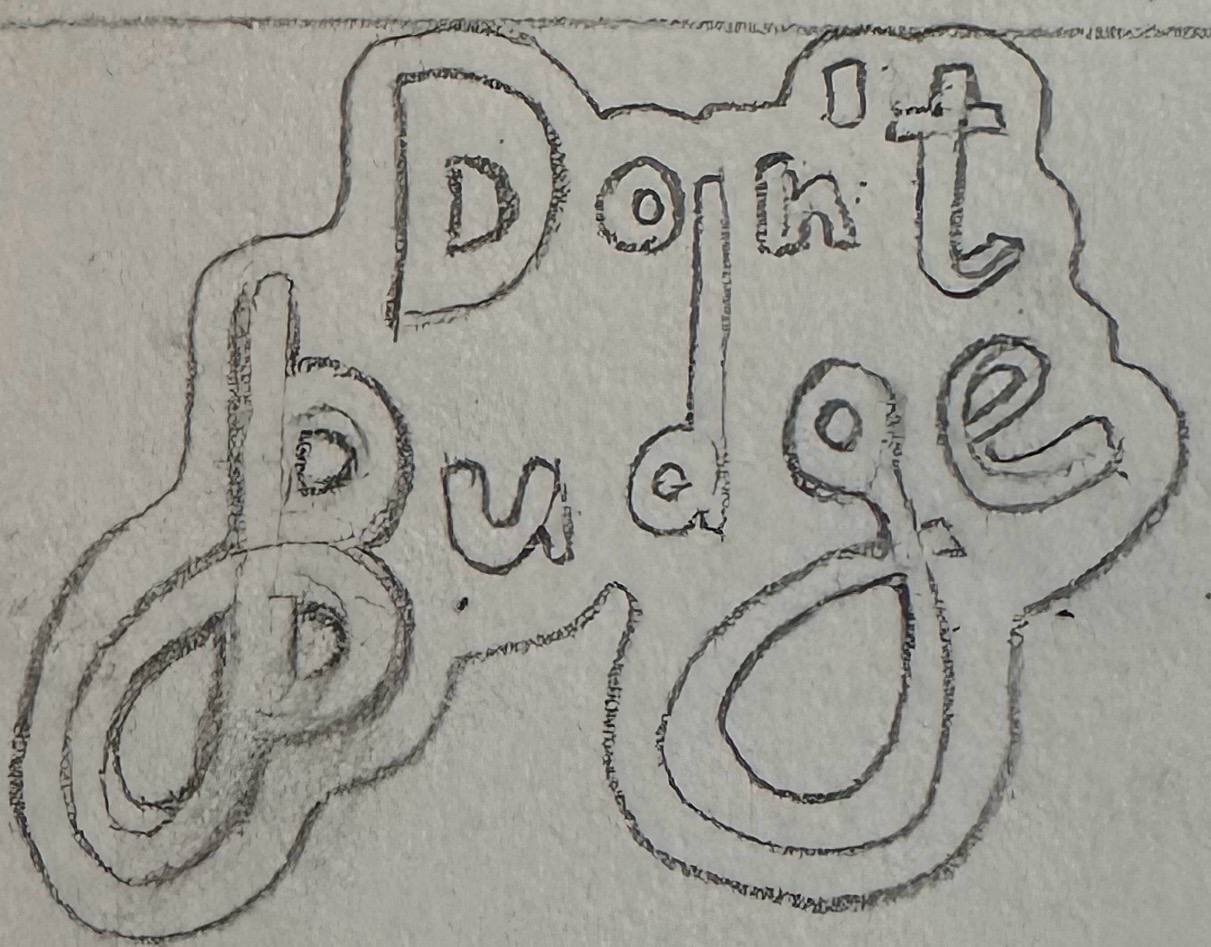 Don't
Budge